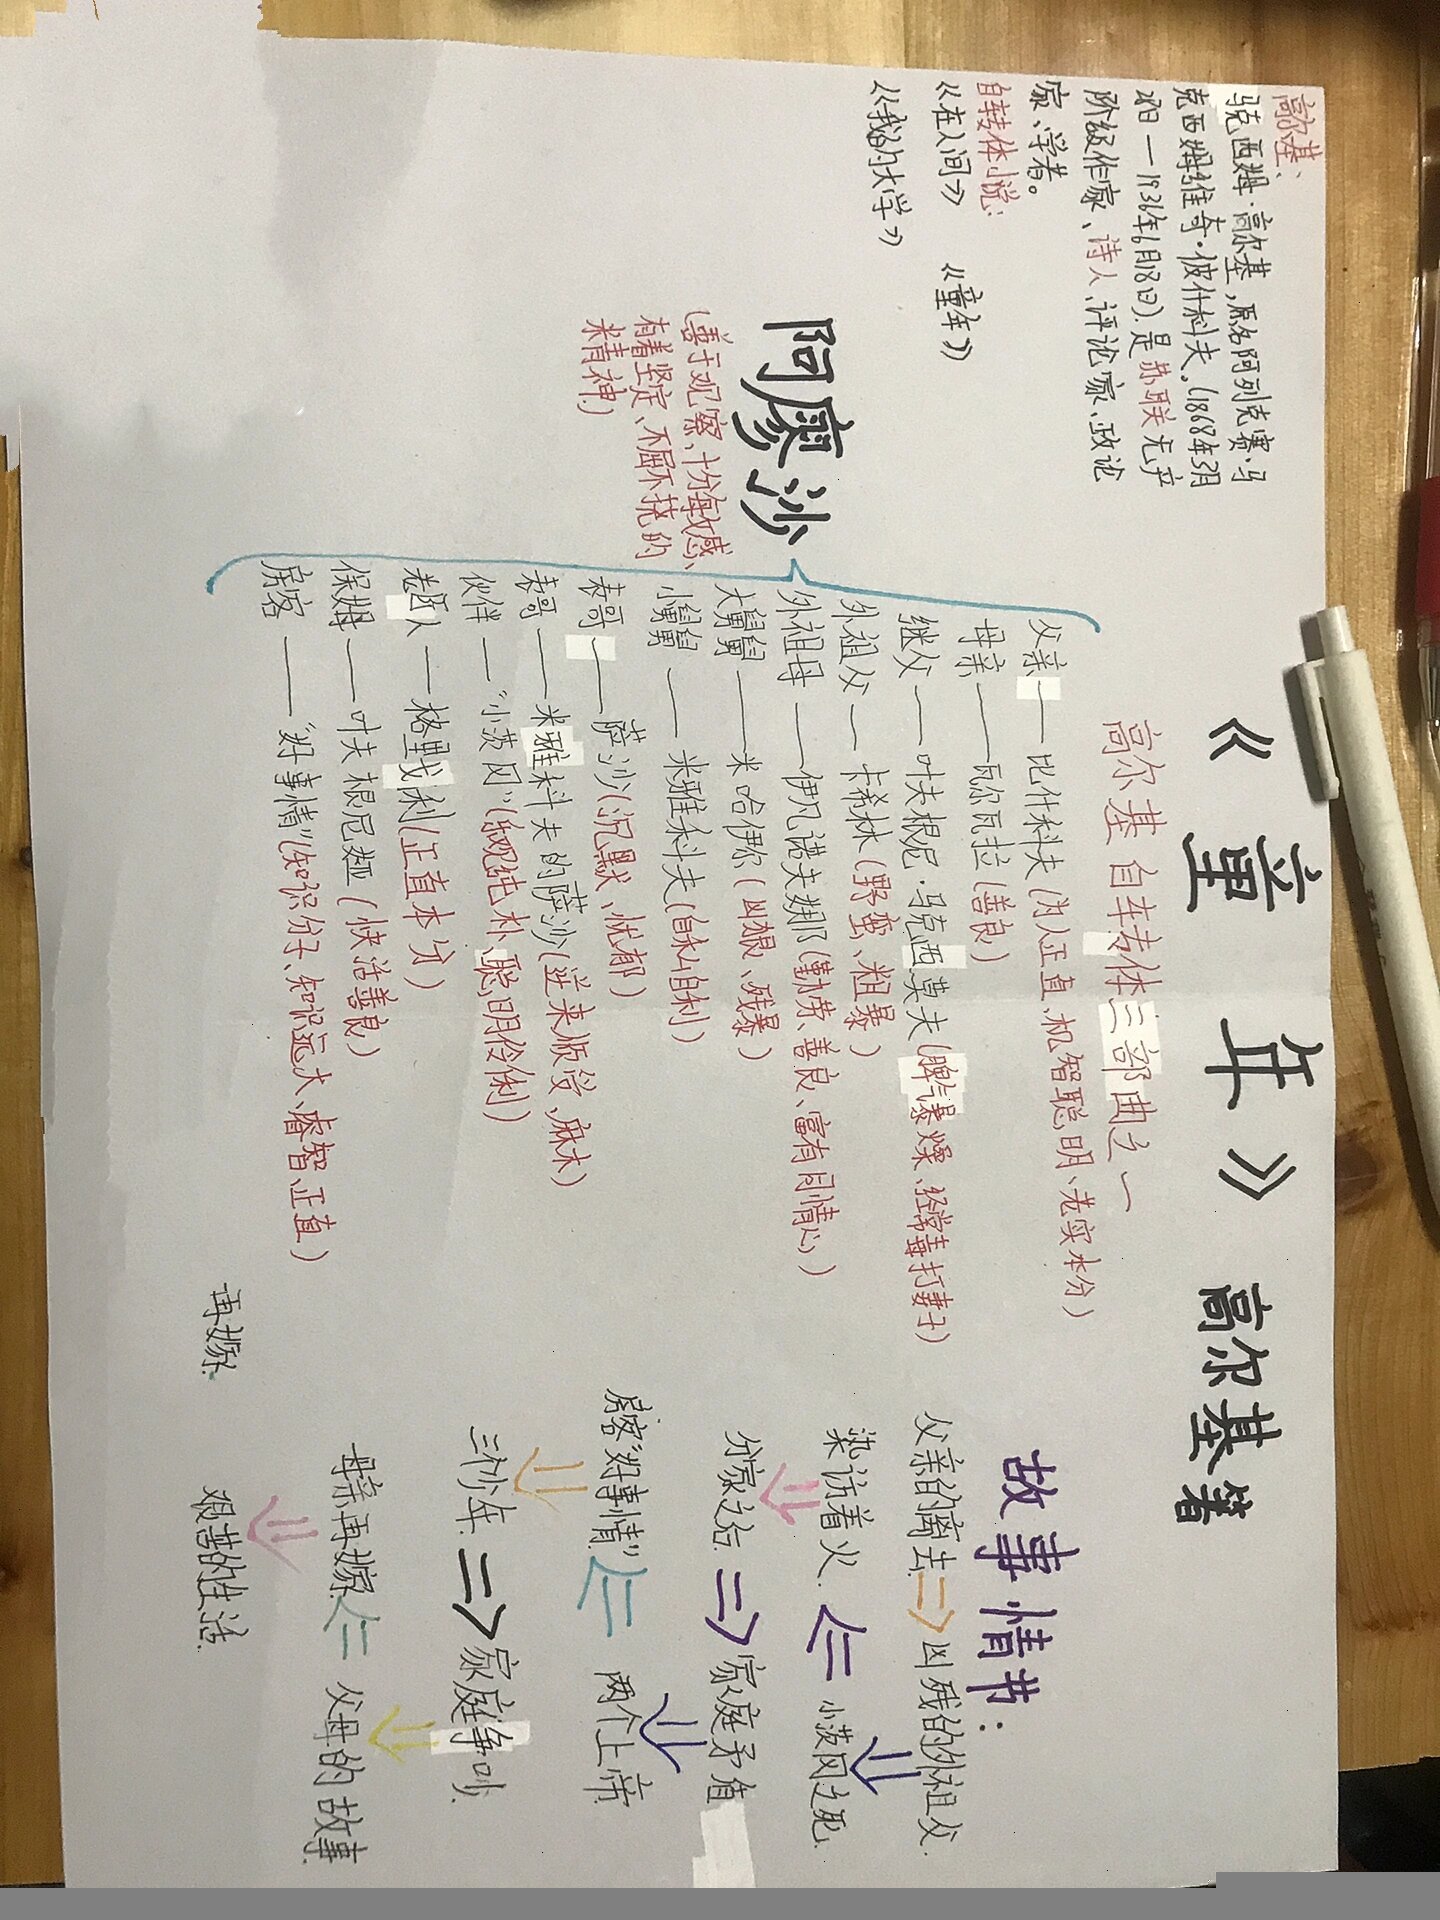 《童年》高尔基著
高尔基自转体三部曲之一
高尔基:
马克西姆·高尔基,原名阿列克赛·马
克西姆维奇·彼什科夫,(1868年3月
日—1936年6月18日).是苏联无产
阶级作家、诗人,评论家、政论
家、学者。
自转体小说:
《在人间》 《童年》
《我的大学》
阿廖沙
(善于观察、十分每文感、
有着坚定、不屈不挠的
米青神)
父亲——比什科夫(为人正直,机智聪明、老实本分)
母亲——瓦尔瓦拉(善良)
继父——叶夫根尼·马克西莫夫(脾气暴燥、经常毒打妻子)
外祖父—卡希林(野蛮、粗暴)
外祖母——伊凡诺夫娜(勤劳、善良、富有同情心,)
大舅舅——米哈伊尔(凶狠、残暴)
小舅舅——米雅科夫(自私自利)
表哥——萨沙(沉默、忧郁)
表哥——米雅科夫的萨沙(逆来顺受、麻木)
伙伴——"小茨冈"(乐观纯朴、聪明伶俐)
老匠人—格里戈利(正直本分)
保姆——叶夫根尼娅(快活善良)
房客——"好事情"(知识分子、知识远大、睿智、正直)
故事情节:
父亲的离去⇒凶残的外祖父.
染访着火.⇐小茨冈之死.
分家之后.⇒家庭矛盾
房客"好事情"⇐两个上帝.
三个少年.⇒家庭争吵.
母亲再嫁.⇐父母的故事
艰苦的生活.
再嫁.